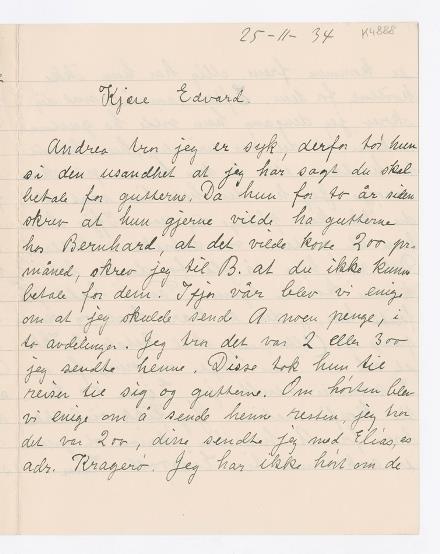 25-11-34 K4888
Kjære Edvard
Andrea tror jeg er syk, derfor tør hun
si den usandhet at jeg har sagt du skal
betale for guttene. Da hun for to år siden
skrev at hun gjerne vilde ha guttene
hos Bernhard, at det vilde koste 200 pr.
måned, skrev jeg til B. at du ikke kunne
betale for dem. Ifjor vår blev vi enige
om at jeg skulde sende A noen penge, i
to avdelinger. Jeg tror det var 2 eller 300
jeg sendte henne. Disse tok hun til
reiser til sig og guttene. Om høsten blev
vi enige om å sende henne resten, jeg tror
det var 200, disse sendte jeg med Elias,
adr. Kragerø. Jeg har ikke hørt om de